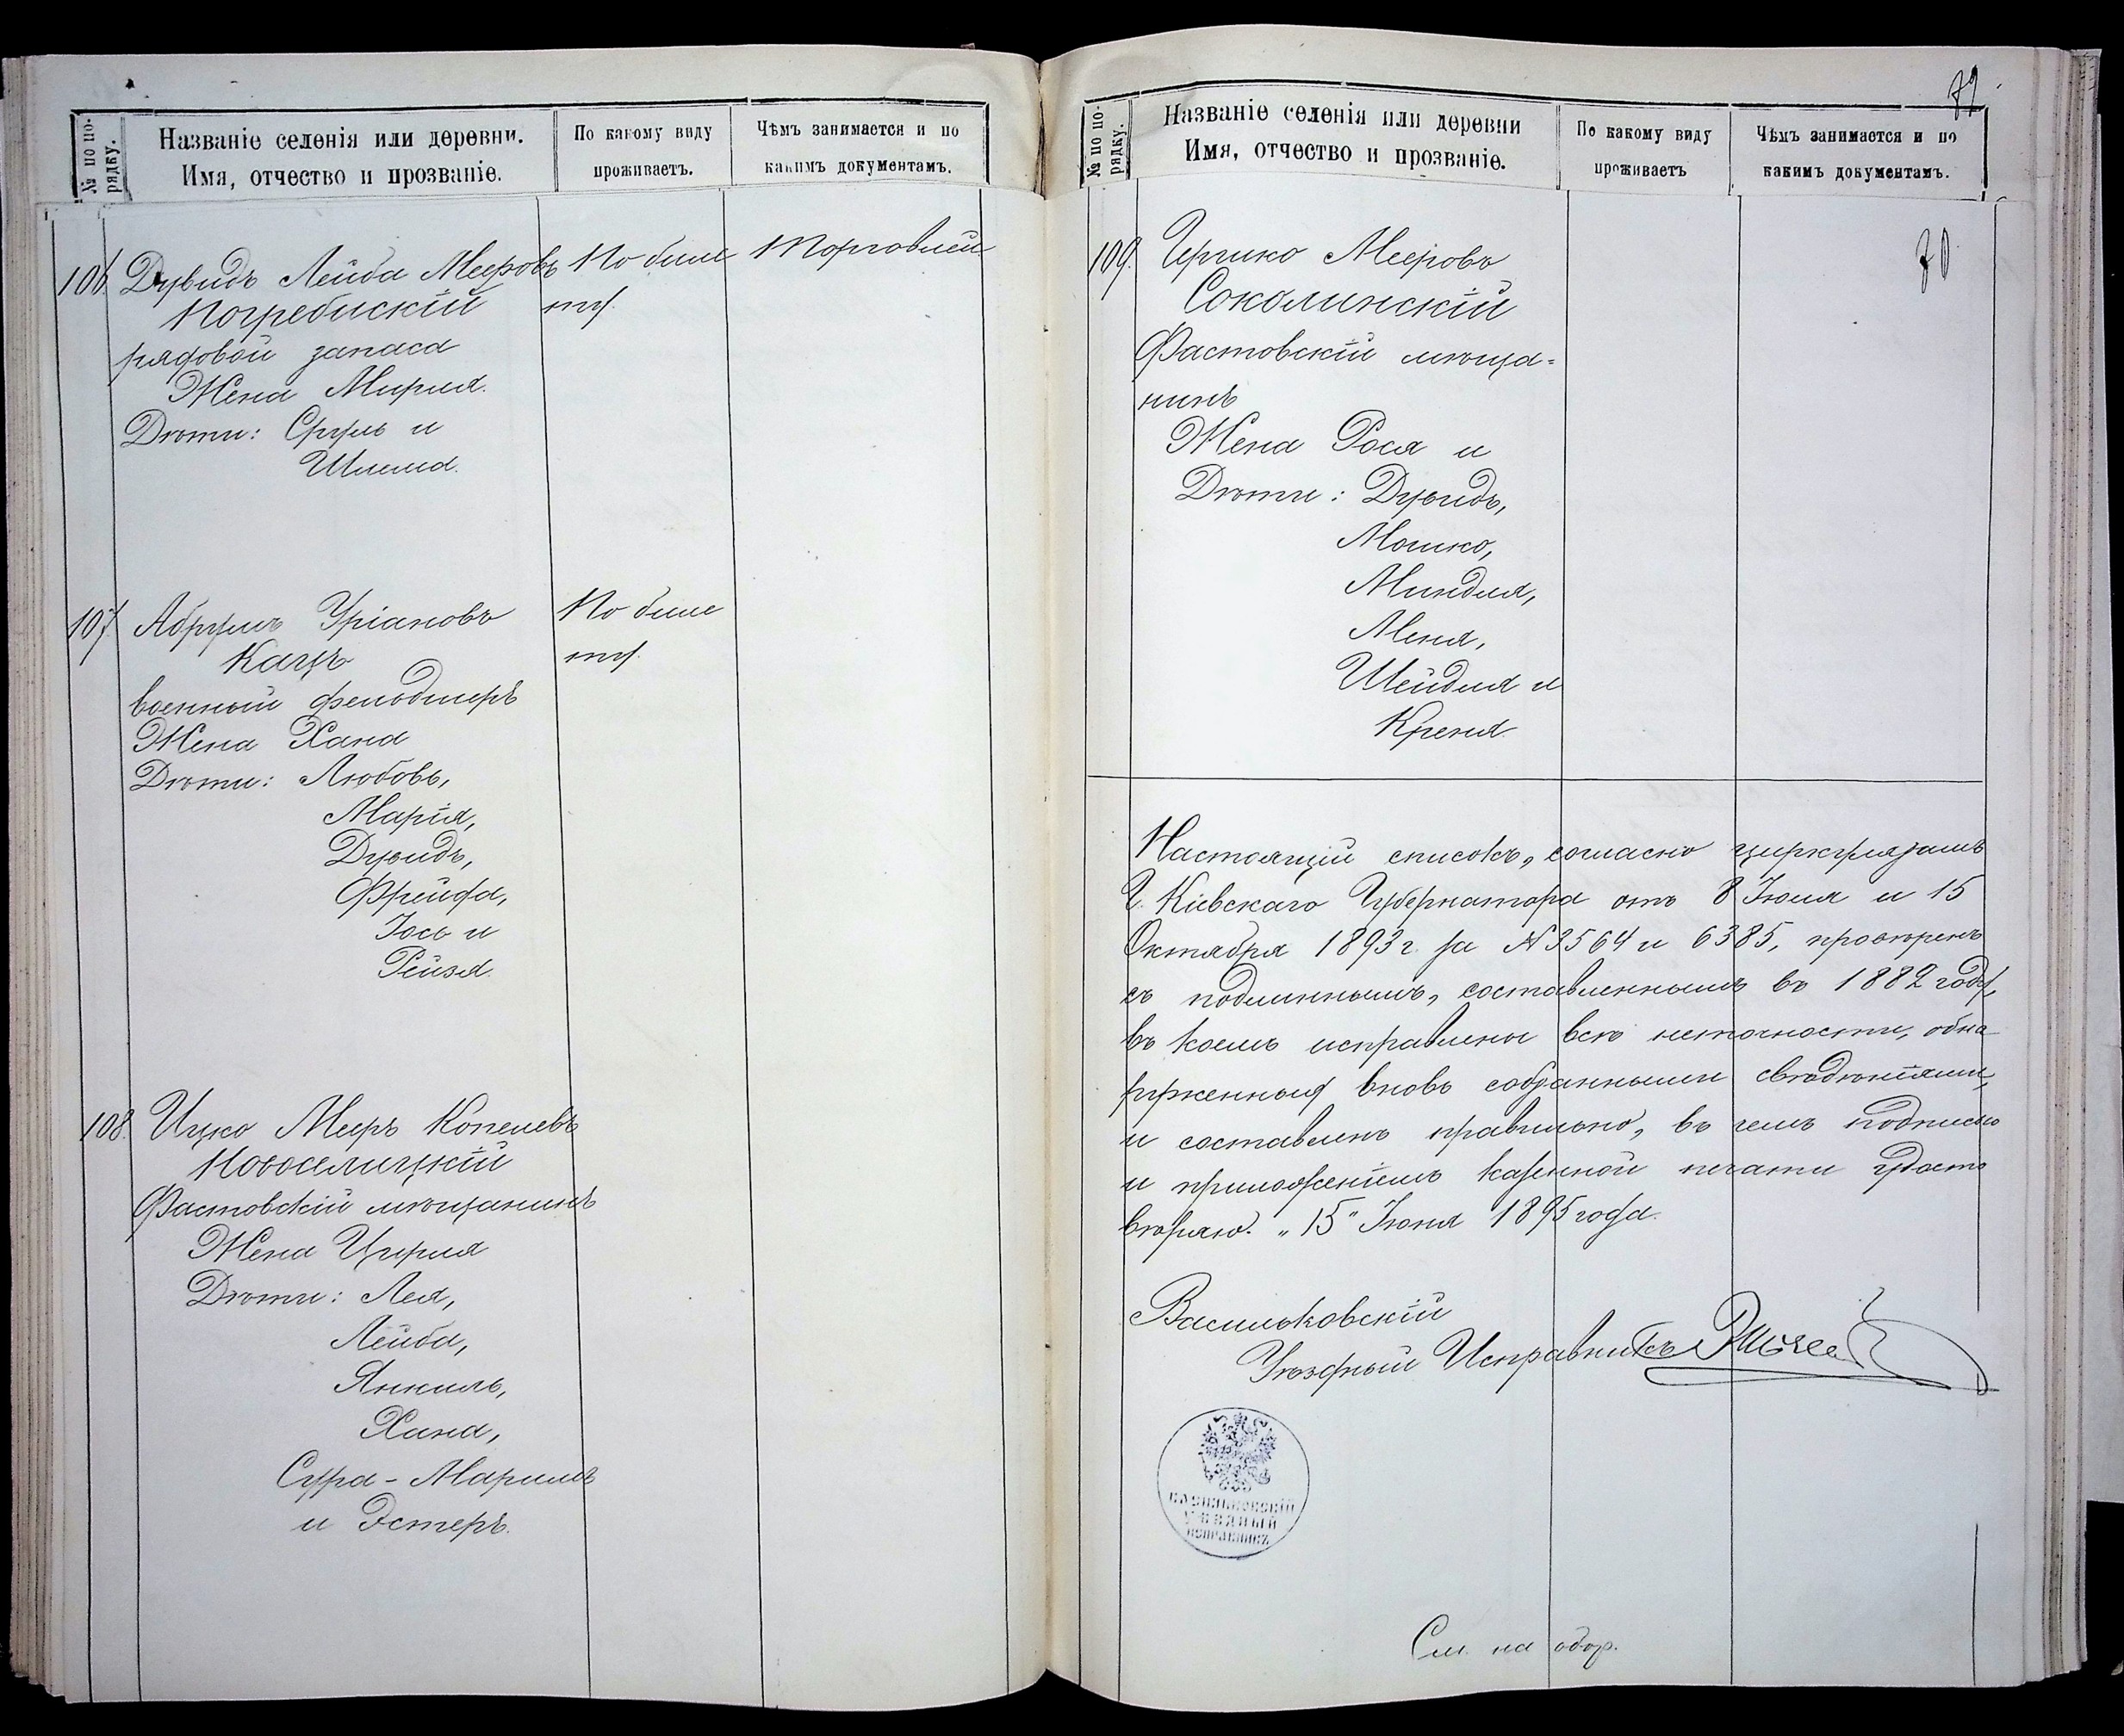 № по по-
рядку.
Названіе селенія или деревни.
Имя, отчество и прозваніе.
По какому виду
проживаетъ.
Чѣмъ занимается и по
какимъ документамъ.
106. Дувидъ Лейба Мееровъ По биле Торговлей
Погребискій ту.
рядовой запаса
Жена Мирля.
Дѣти: Сруль и
Шлема.
107. Абрумъ Уріановъ По биле
Кацъ ту.
военный фельдшеръ
Жена Хана
Дѣти: Любовь,
Марія,
Дувидъ,
Фрейда,
Іось и
Рейзя.
108. Ицко Меръ Копелевъ
Новоселицкій
Фастовскій мѣщанинъ
Жена Цирля
Дѣти: Лея,
Лейба,
Янкиль,
Хана,
Сура-Маримъ
и Эстеръ.
72.
№ по по-
рядку.
Названіе селенія или деревни
Имя, отчество и прозваніе.
По какому виду
проживаетъ
Чѣмъ занимается и по
какимъ документамъ.
70
109. Гершко Мееровъ
Соколинскій
Фастовскій мѣща=
нинъ
Жена Рося и
Дѣти: Дувидъ,
Мошко,
Миндля,
Меня,
Шейдля и
Креня.
Настоящій списокъ, согласно циркулярамъ
Г. Кіевскаго Губернатора отъ 8 Іюля и 15
Октября 1893 г. за № 3564 и 6385, провѣренъ
съ подлиннымъ, составленнымъ въ 1882 году,
въ коемъ исправлены всѣ неточности, обна
руженныя вновь собранными свѣдѣніями,
и составленъ правильно, въ чемъ подписью
и приложеніемъ казенной печати удосто
вѣряю. „15" Іюня 1895 года.
Васильковскій
Уѣздный Исправникъ
ВАСИЛЬКОВСКІЙ
УѢЗДНЫЙ
ИСПРАВНИКЪ
См. на обор.